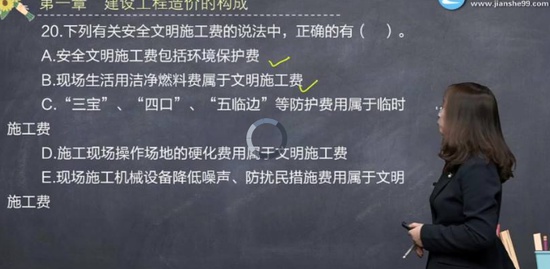 第一章 建设工程造价的构成
www.jianshe99.com
20.下列有关安全文明施工费的说法中，正确的有（ ）。
A.安全文明施工费包括环境保护费
B.现场生活用洁净燃料费属于文明施工费
C.“三宝”、“四口”、“五临边”等防护费用属于临时
施工费
D.施工现场操作场地的硬化费用属于文明施工费
E.现场施工机械设备降低噪声、防扰民措施费用属于文明
施工费